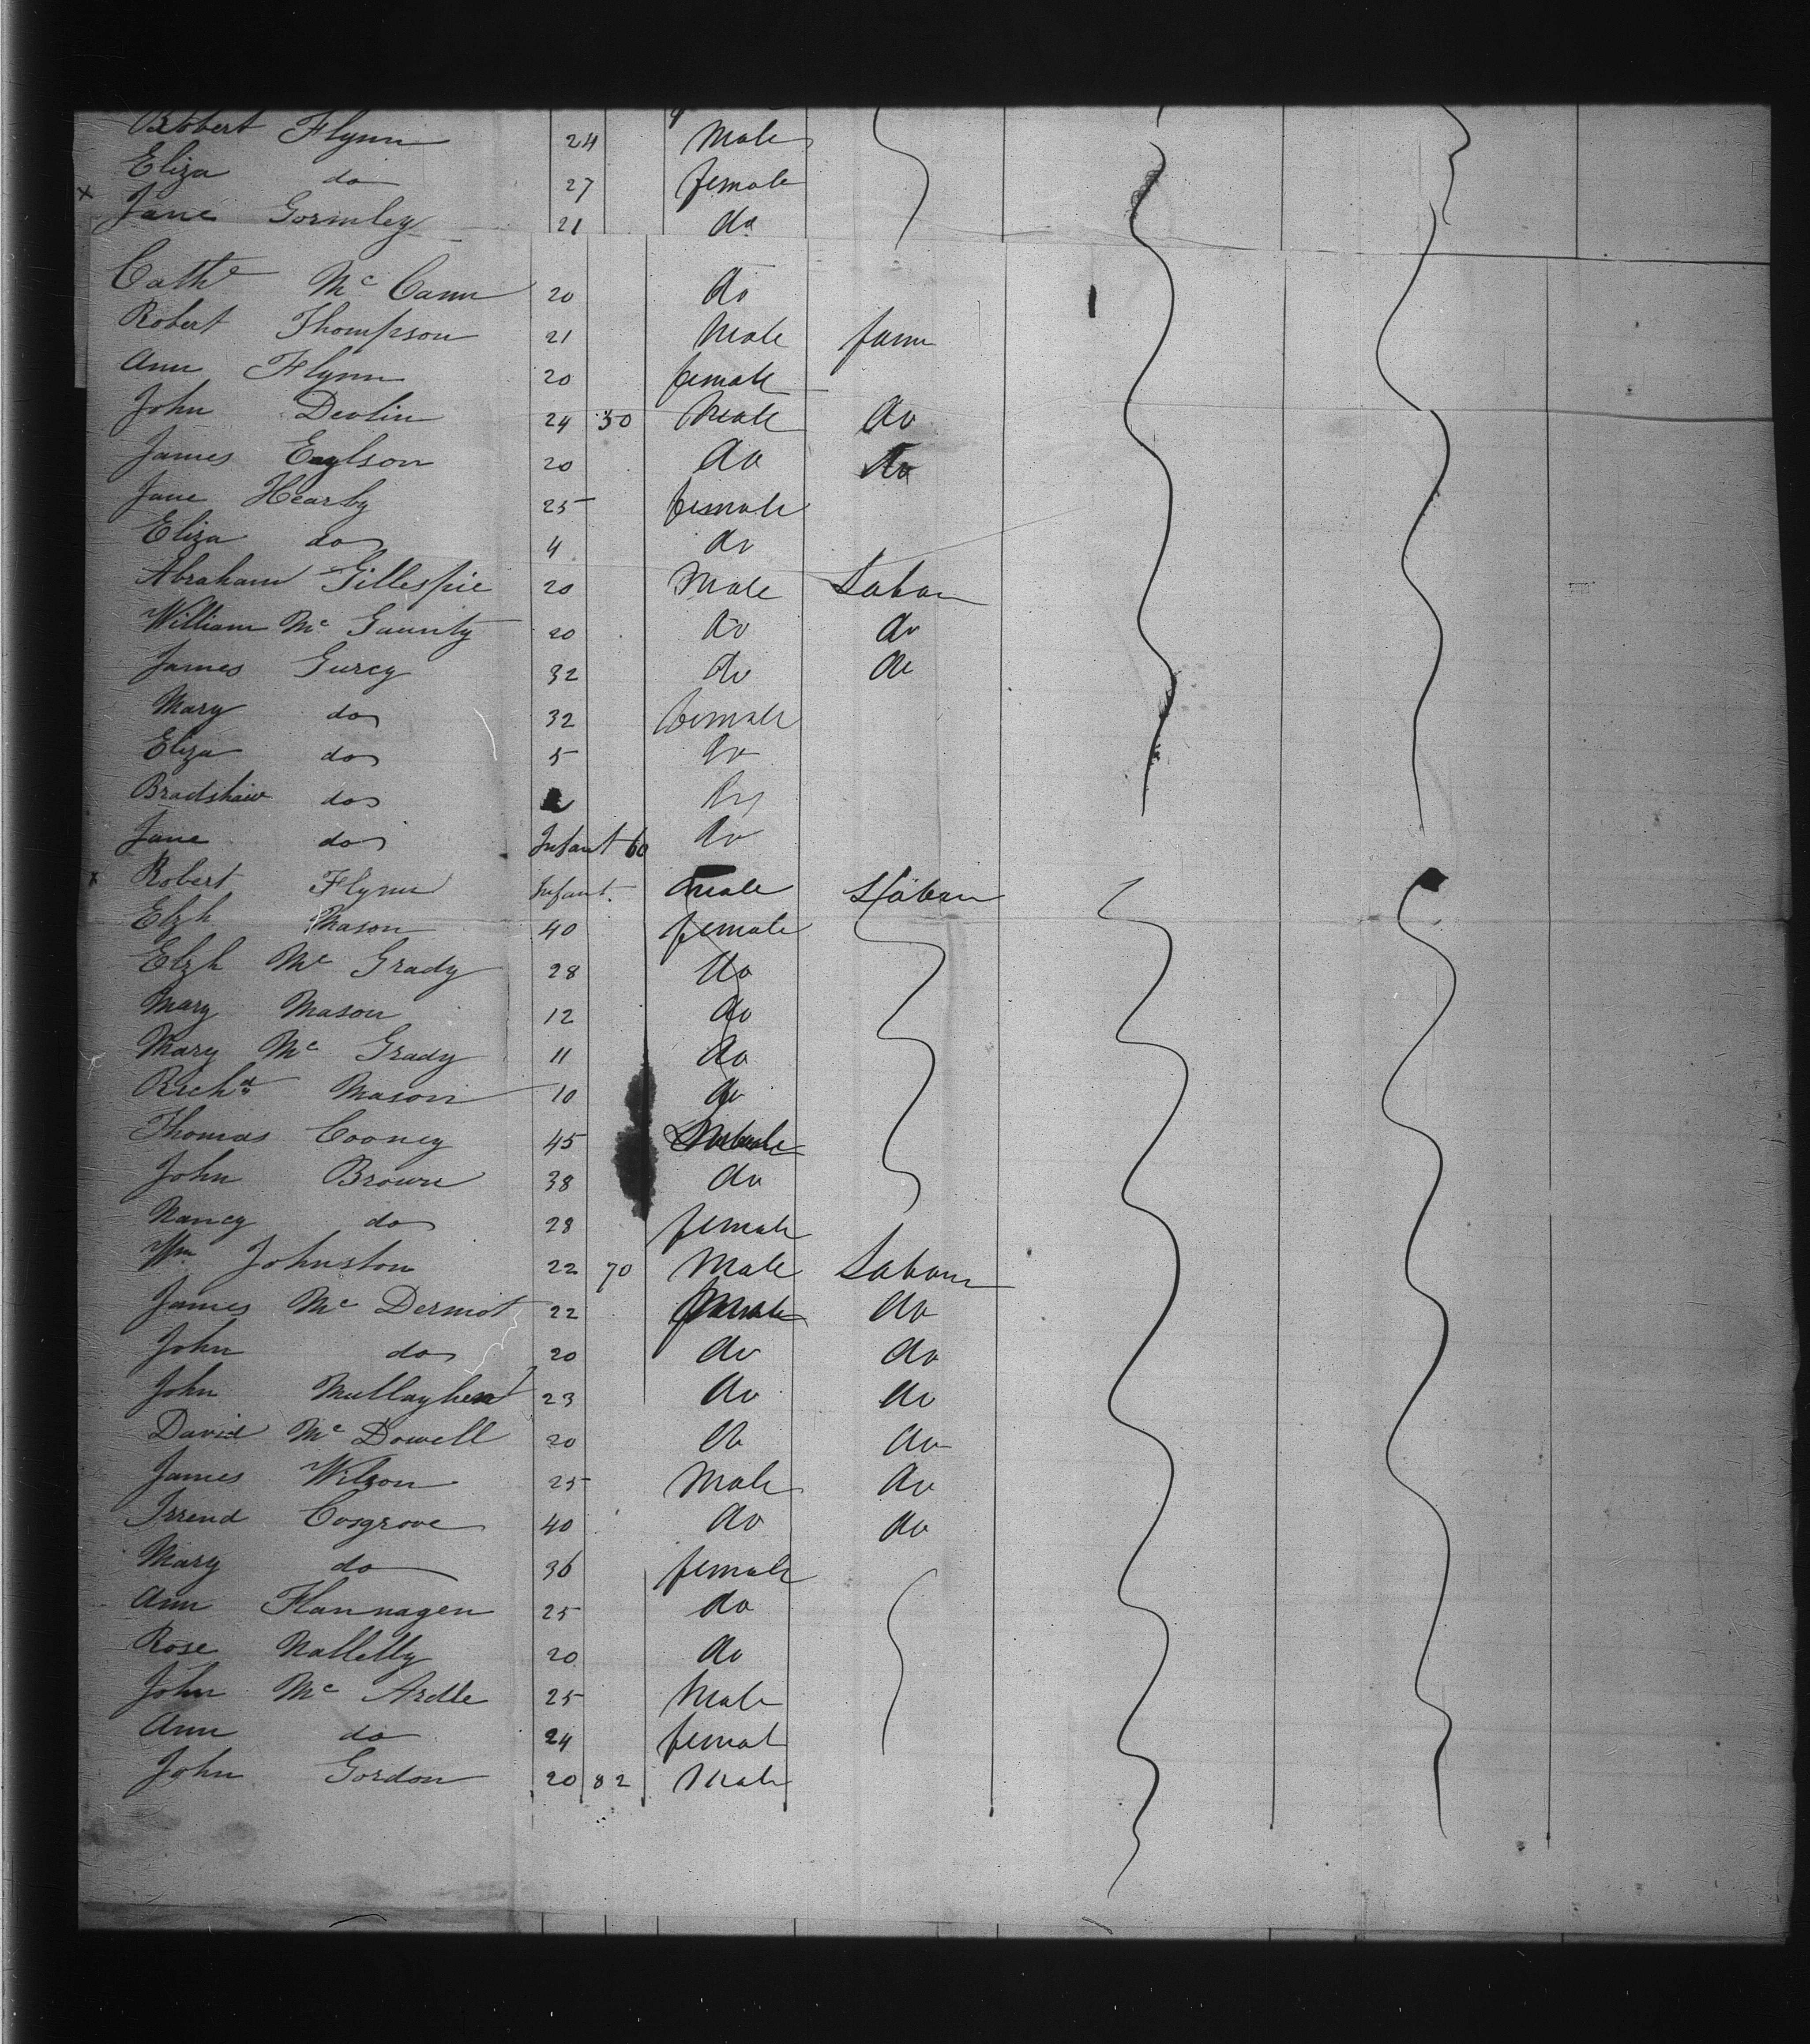 Robert Flynn 24 Male
Eliza do 27 female
x Jane Gormley 21 do
Cathe Mc Cann 20 do
Robert Thompson 21 Male farm
Ann Flynn 20 female
John Devlin 24 50 Male do
James Eaglson 20 do do
Jane Hearby 25 female
Eliza do 4 do
Abraham Gillespie 20 Male Labour
William Mc Gaunty 20 do do
James Gurcy 32 do do
Mary do 32 female
Eliza do 5 do
Bradshaw do do
Jane do Infant 60 do
x Robert Flynn Infant male Labour
Elzh Mason 40 female
Elzh Mc Grady 28 do
Mary Mason 12 do
Mary Mc Grady 11 do
Richd Mason 10 do
Thomas Cooney 45 Male
John Brown 38 do
Nancy do 28 female
Wm Johnston 22 70 Male Labour
James Mc Dermot 22 do
John do 20 do do
John Mullaghen 23 do do
David Mc Dowell 20 do do
James Wilson 25 Male do
Cosgrove 40 do do
Mary do 36 female
Ann Flannagen 25 do
Rose Nallelly 20 do
John Mc Ardle 25 Male
Ann do 24 female
John Gordon 20 82 Male